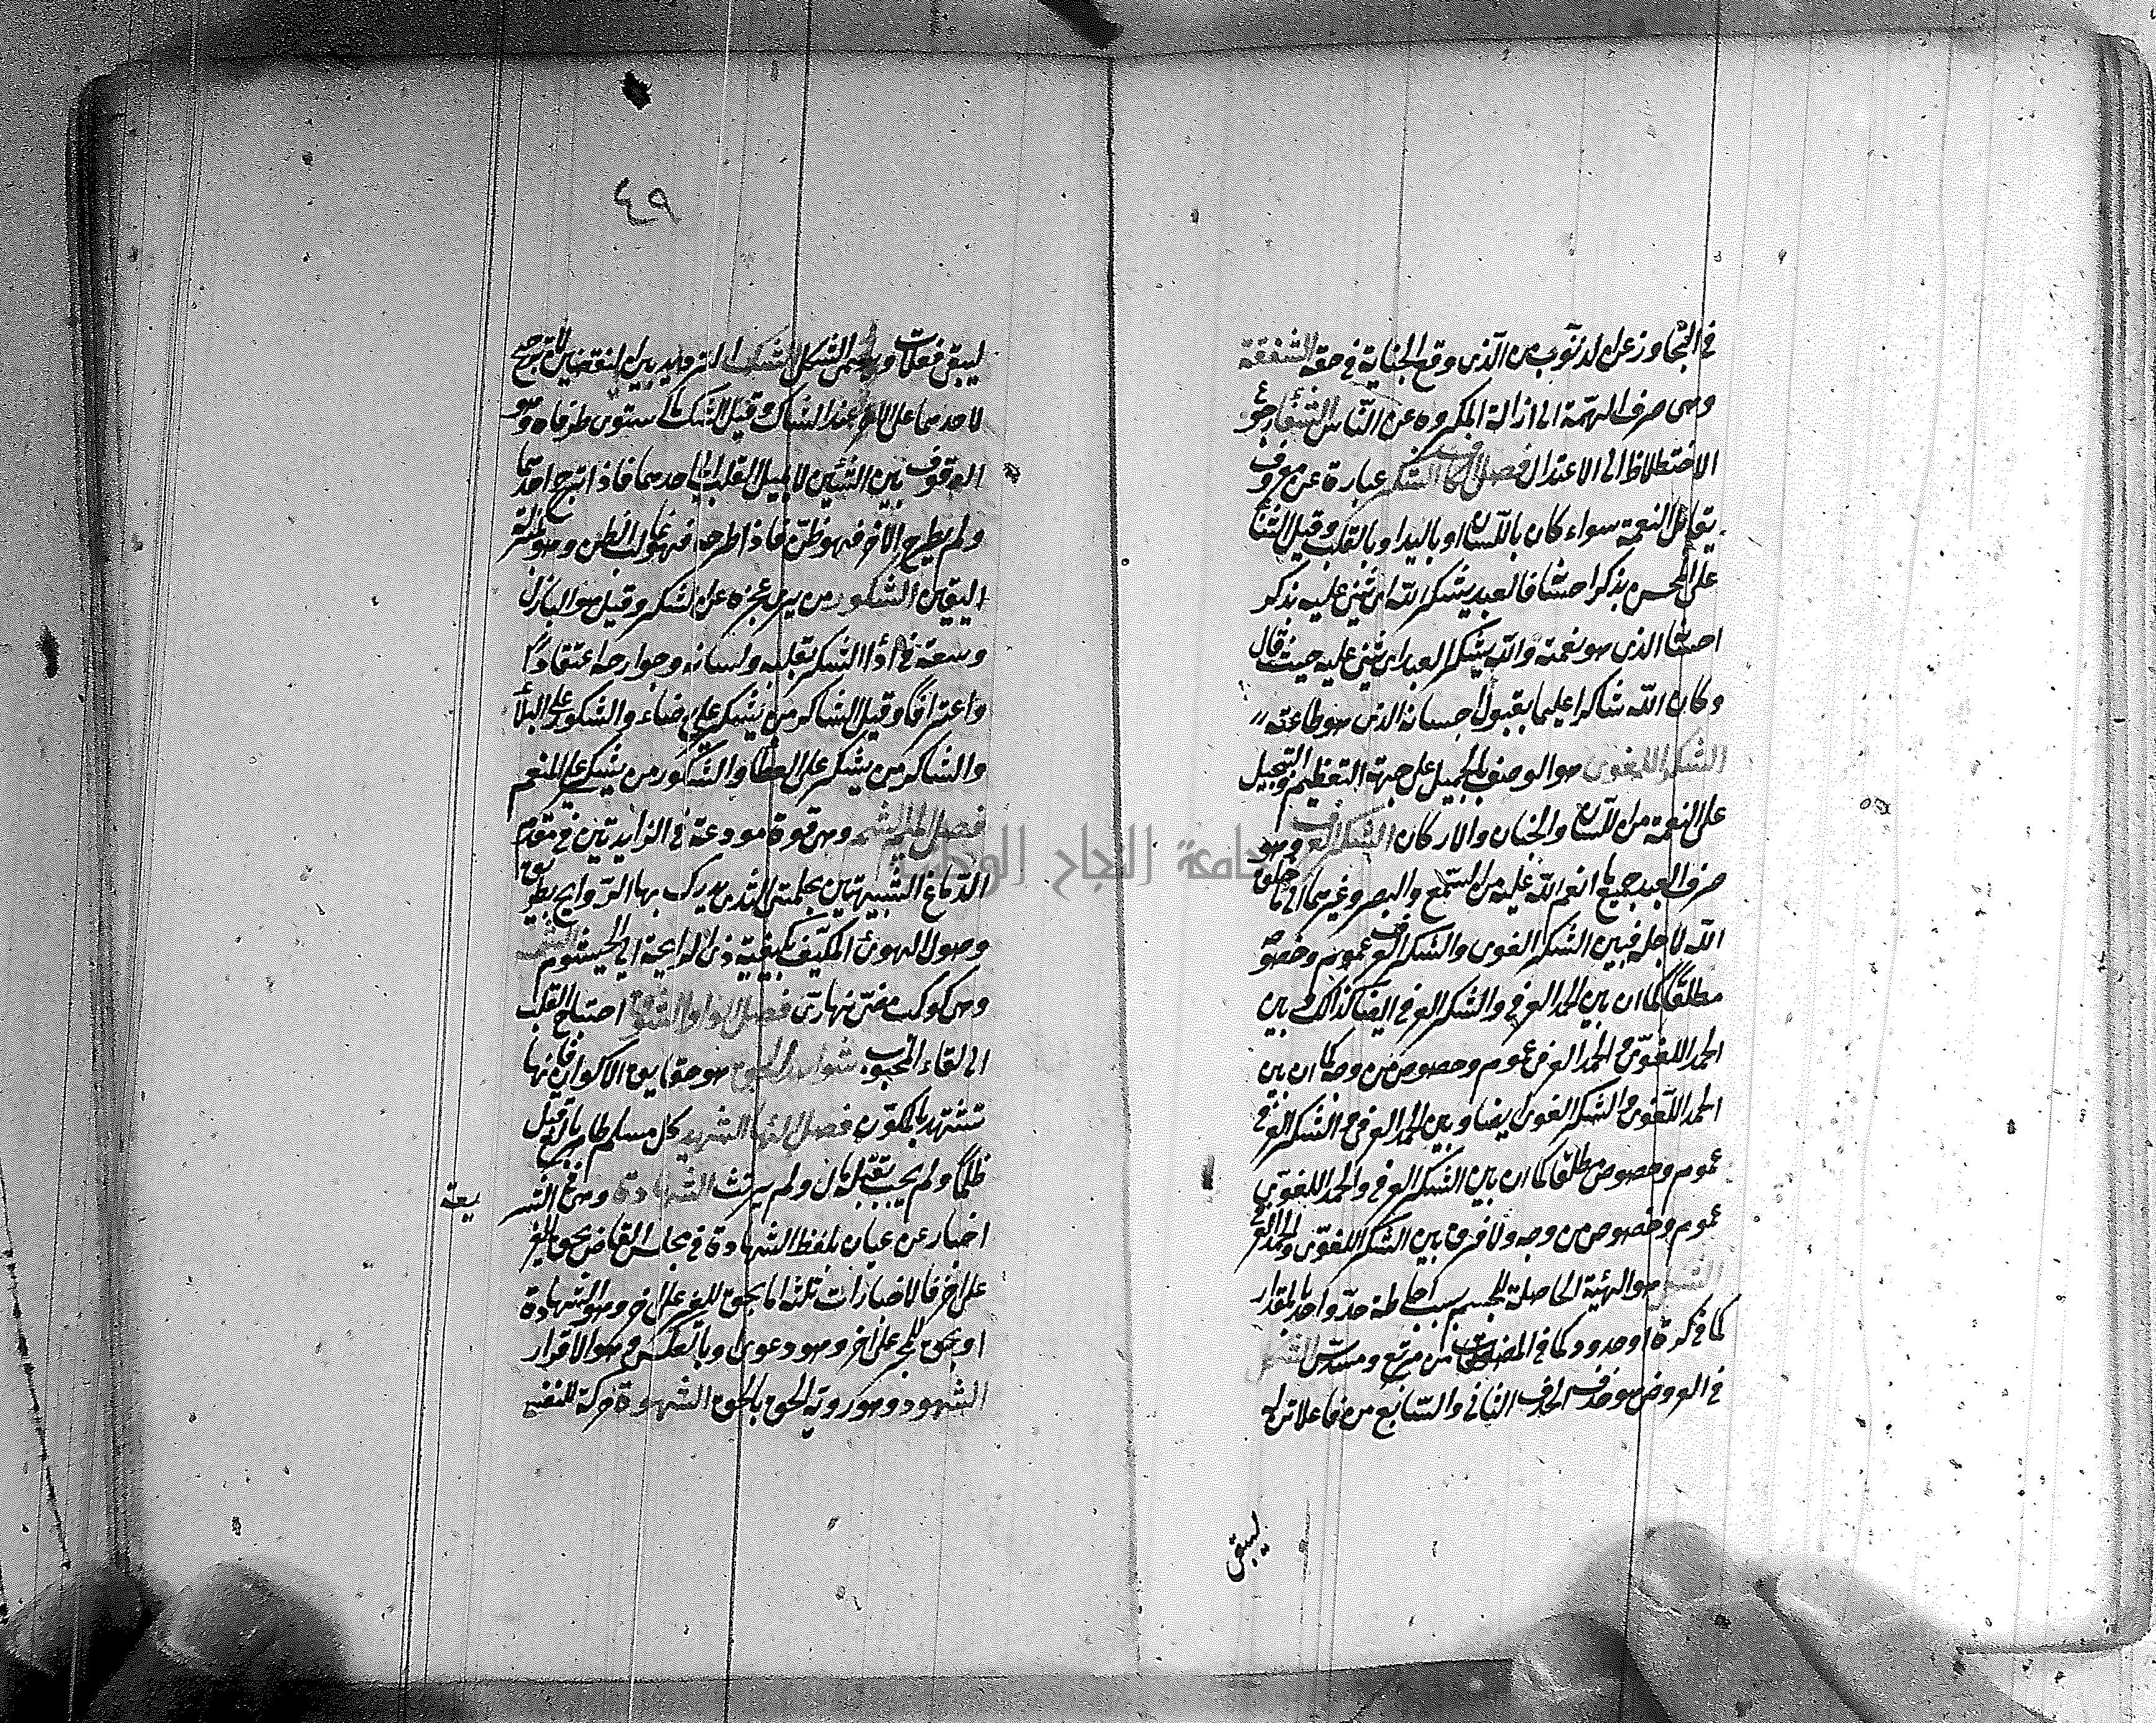 في التجاوز عن الذنوب من الذى وقع الجناية في حقه الشفقة
وهى صرف الهمّة الى ازالة المكروه عن الناس الشفاء رجوع
الاختلاط الى الاعتدال فصل الكاف الشكر عبارة عن معروف
يقابل النعمة سواء كان باللسان او باليد او بالقلب وقيل الثنا
على المحسن بذكر احسا فالعبد يشكر الله اى يثنى عليه بذكر
احسا الذى هو نعمة والله يشكر العبد اى يثنى عليه حيث قال
وكان الله شاكرا عليما بقبول احسانه الذى هو طاعته
الشكر اللغوى هو الوصف بالجميل على جهة التعظيم والتبجيل
على النعمة من اللسان والجنان والاركان الشكر العرفى وهو
صرف العبد جميع ما انعم الله عليه من السمع والبصر وغيرهما الى ما خلق
الله لاجله فبين الشكر اللغوى والشكر العرفى عموم وخصو
مطلقًا كما ان بين الحمد العرفى والشكر العرفى ايضا كذلك بين
الحمد اللغوىّ والحمد العرفى عموم وخصوص من وجه كما ان بين
الحمد اللغوى والشكر اللغوى ايضا وبين الحمد العرفى والشكر العرفى
عموم وخصوص مطلقًا كما ان بين الشكر العرفى والحمد اللغوى
عموم وخصوص من وجه ولا فرق بين الشكر اللغوى والحمد العرفى
الشكل هو الهئية الحاصلة للجسم بسبب احاطة حدّ واحد بالمقدار
كما في كرة او حدود كما في المضلعات من مربّع ومسدّس الشكل
في العروض هو حذف الحرف الثانى والسّابع من فاعلاتن
ليبقى
٤٩
ليبقى فعلات ويسمى اشكل الشك التردد بين النقضين لا ترجيح
لاحدهما على الاخر عند الشاك وقيل الشك ما ستوى طرفاه وهو
الوقوف بين الشيئين لا يميل القلب الى احدهما فاذا ترجّح احدهما
ولم يطرح الاخر فهو ظنّ فاذا طرحه فهو غالب الظن وهو بمنزلة
اليقين الشكور من يرى عجزه عن الشكر وقيل هو الباذل
وسعه في اداْ الشكر بقلبه ولسانه وجوارحه اعتقادًا
واعترافًا وقيل الشاكر من يشكر على رخاء والشكور على البلاْ
والشاكر من يشكر على العطاْ والشكور من يشكر على المنع
فصل الميم الشم وهى قوة مودعة في الزايدتين في مقدّم
الدماغ الشبيهتين بحلمتى الثدى يدرك بها الروايح بطريق
وصول الهوى المكيّف بكيفية ذى الرايحة الى الخيشوم الشمس
وهى كوكب مضئ نهارىّ فصل الواو الشوق احتياج القلب
الى لقاء المحبوب شواهد الحق هو حقايق الاكوان فانها
تشهد بالمكوّن فصل الهاء الشهيد كل مسلم طاهر بالغ قتل
ظلمًا ولم يجب بقتله مال ولم يرتث الشهادة وهى في الشر
يعة
اخبار عن عيان بلفظ الشهادة في مجلس القاضى بحق للغير
على اخر فالاخبارات ثلثه اما بحق للغير على اخر وهو الشهادة
او بحق للمخبر على اخر وهو دعوى او بالعكس وهو الاقرار
الشهود وهو روية الحق بالحق الشهوة حركة للنفس
جامعة النجاح الوطنية